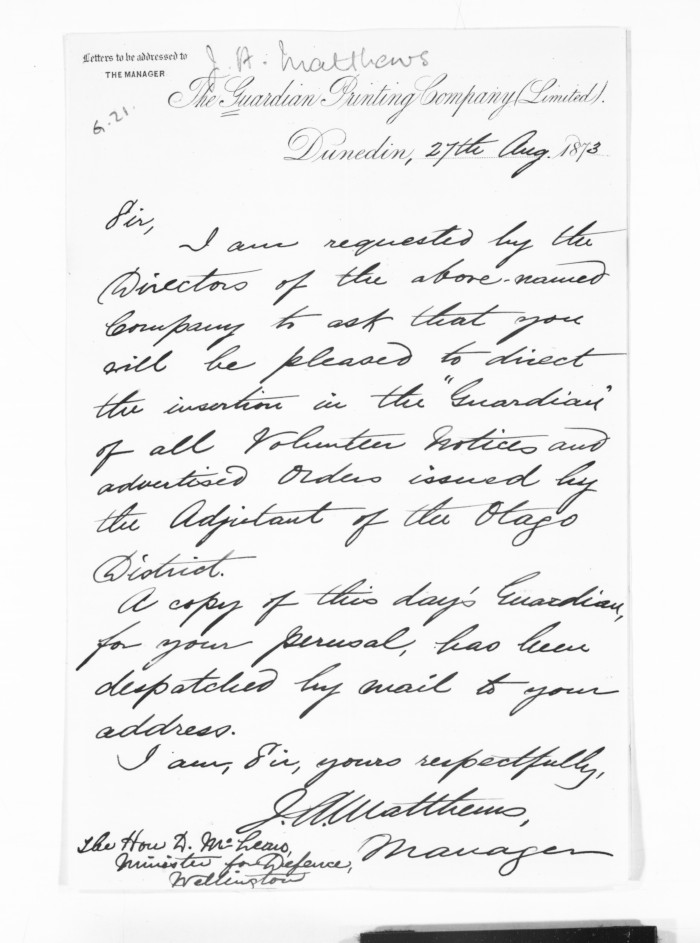 Letters to be addressed to
THE MANAGER
J. A. Matthews
The Guardian Printing Company (Limited).
G. 21.
Dunedin, 27th Aug. 1873
Sir,
I am requested by the
Directors of the above-named
Company to ask that you
will be pleased to direct
the insertion in the "Guardian"
of all Volunteer Notices and
advertised Orders issued by
the Adjutant of the Otago
District.
A copy of this day's Guardian,
for your perusal, has been
despatched by mail to your
address.
I am, Sir, yours respectfully,
J. A. Matthews,
Manager
The Hon D. McLean,
Minister for Defence,
Wellington